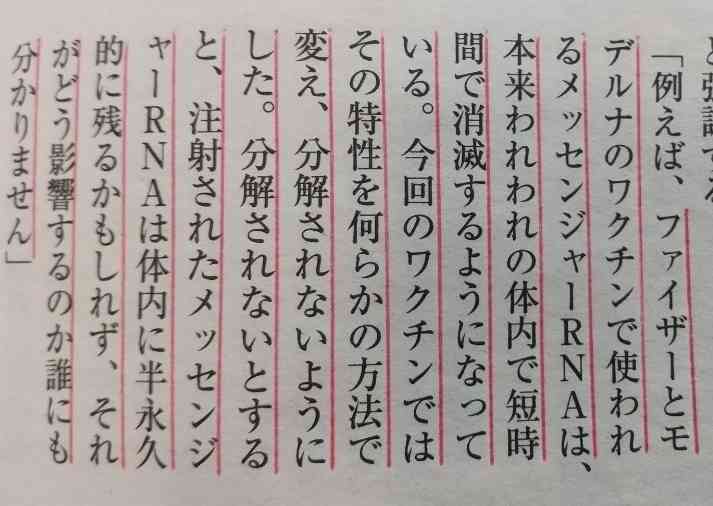 「例えば、ファイザーとモ
デルナのワクチンで使われ
るメッセンジャーRNAは、
本来われわれの体内で短時
間で消滅するようになって
いる。今回のワクチンでは
その特性を何らかの方法で
変え、分解されないように
した。分解されないとする
と、注射されたメッセンジ
ャーRNAは体内に半永久
的に残るかもしれず、それ
がどう影響するのか誰にも
分かりません」